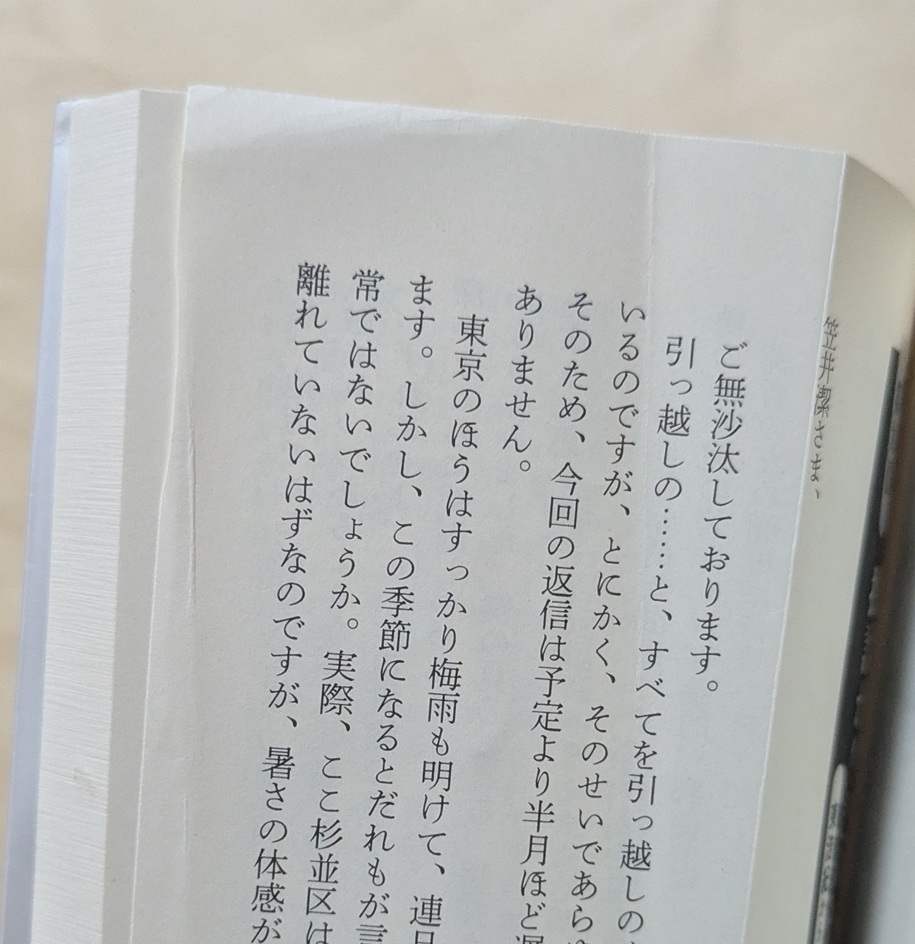 笠井潔さま、
ご無沙汰しております。
引っ越しの……と、すべてを引っ越しの
いるのですが、とにかく、そのせいであら
そのため、今回の返信は予定より半月ほど
ありません。
東京のほうはすっかり梅雨も明けて、連日
ます。しかし、この季節になるとだれもが言
常ではないでしょうか。実際、ここ杉並区は
離れていないはずなのですが、暑さの体感が